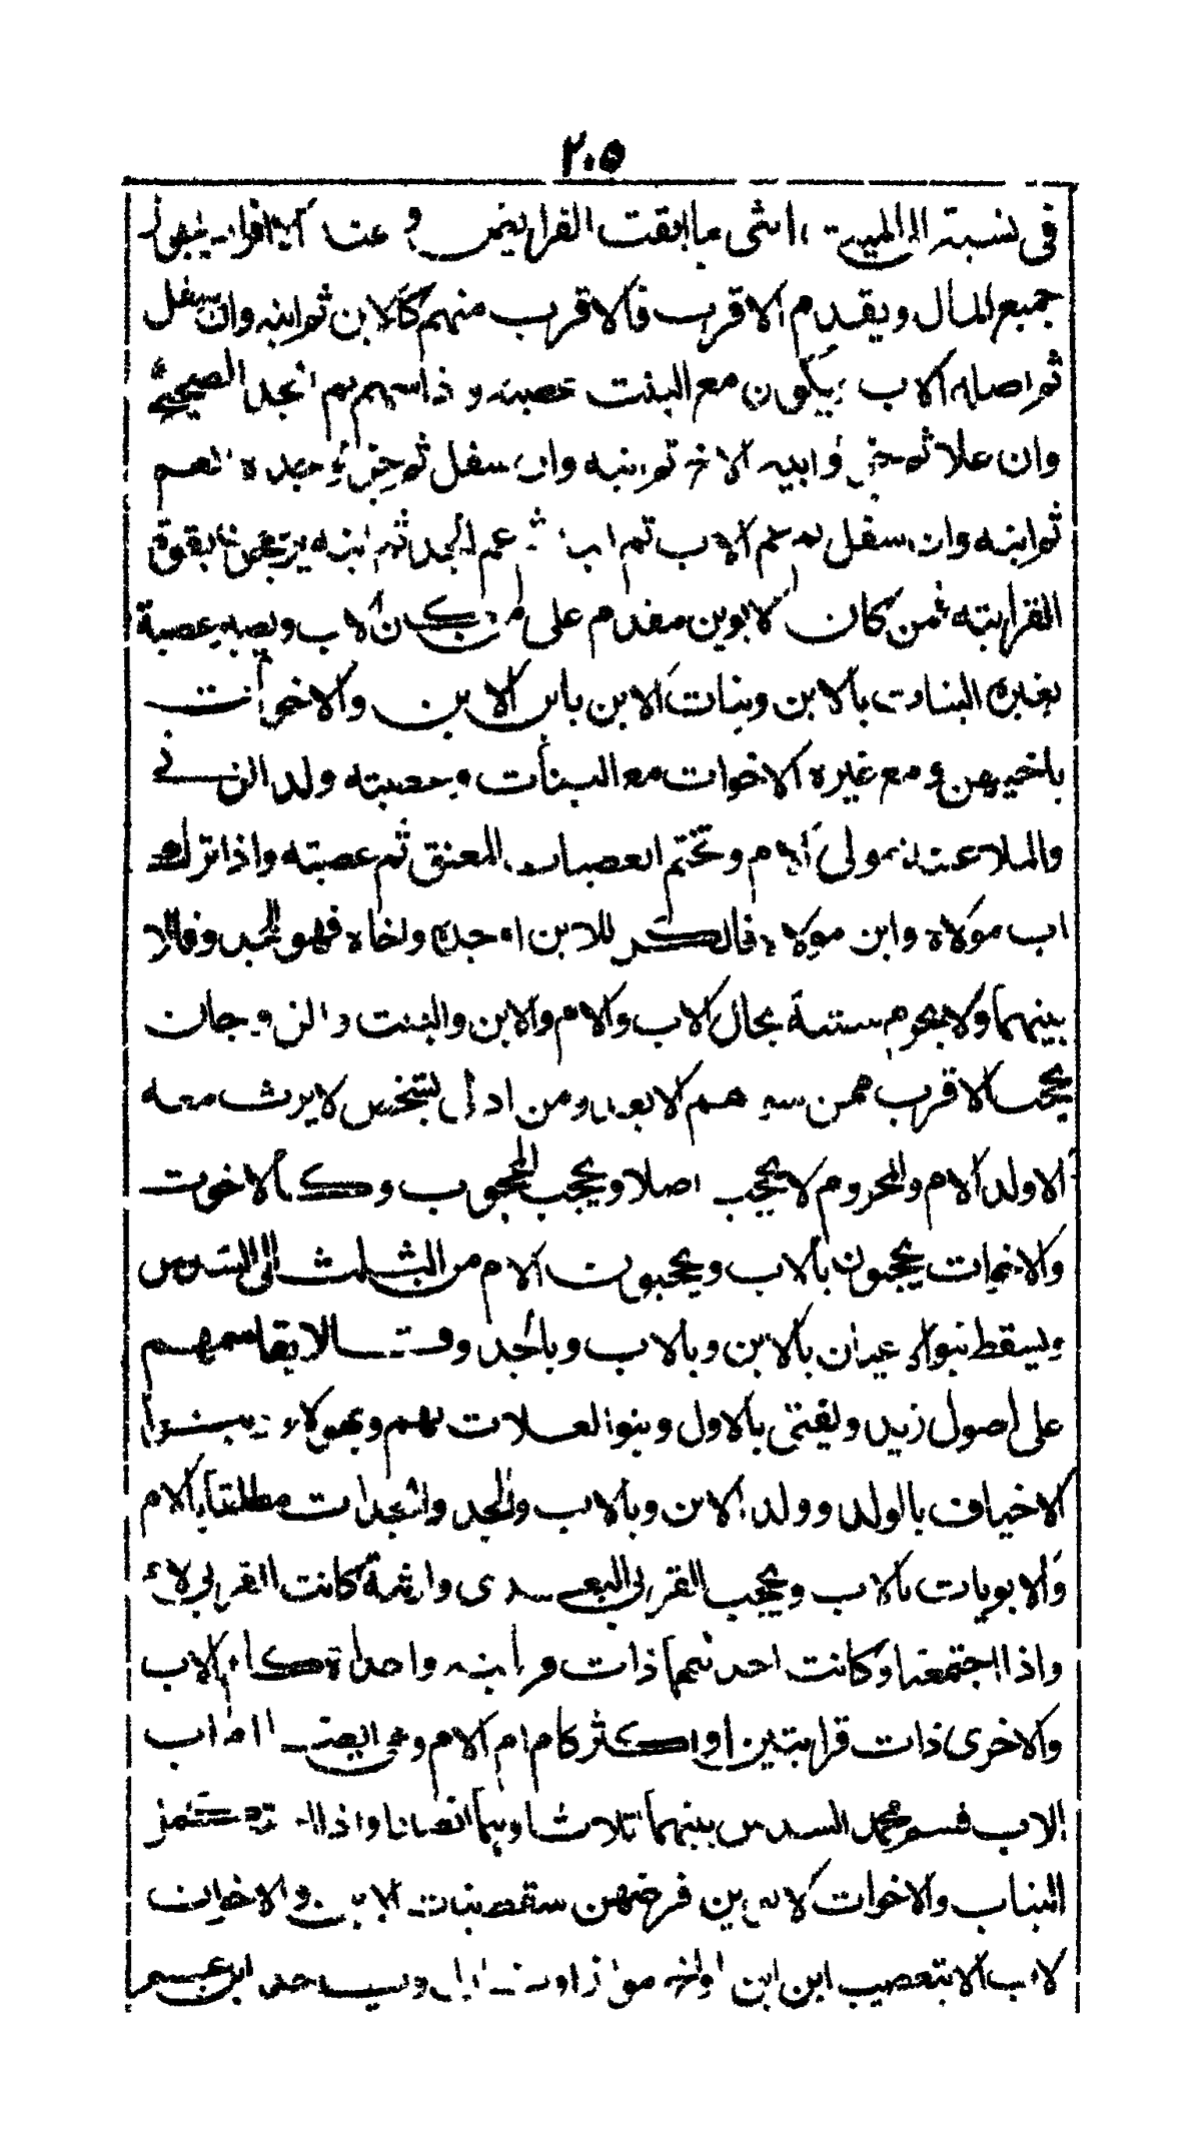 ٢٠٥
فى نسبته الى الميت انثى ما ابقت الفرايض و عند الانفراد يجوز
جميع المال ويقدم الاقرب فالاقرب منهم كالابن ثم ابنه وان سفل
ثم اصله الاب ويكون مع البنت عصبة و ذا سهم ثم الجد الصحيح
وان علا ثم جزؤ ابيه الاخ ثم ابنه وان سفل ثم جزؤ جده العم
ثم ابنه وان سفل ثم عم الاب ثم ابنه ثم عم الجد ثم ابنه يرجحون بقوة
القرابة فمن كان لابوين مقدم على من كان لاب ويصير عصبة
بغيره البنات بالابن وبنات الابن بابن الابن والاخوات
باخيهن و مع غيره الاخوات مع البنات وعصبة ولد الزنى
والملاعنة مولى الام وتختم العصبات بالمعتق ثم عصبته واذا ترك
اب مولاه وابن مولاه فالكل للابن او جده واخاه فهو للجد وقالا
بينهما ولا يحرم ستة بحال الاب والام والابن والبنت والزوجان
يحجب الاقرب ممن سواهم الابعد ومن ادلى بشخص لا يرث معه
الا ولد الام والمحروم لا يحجب اصلا ويحجب المحجوب وكالاخوة
والاخوات يحجبون بالاب ويحجبون الام من الثلث الى السدس
ويسقط بنوا الاعيان بالابن وبالاب وبالجد وقالا يقاسمهم
على اصول زيد ويفتى بالاول وبنوا العلات بهم وبهولاء وبنوا
الاخياف بالولد وولد الابن وبالاب والجد والجدات مطلقا بالام
والابويات بالاب ويحجب القربى البعدى وارثة كانت القربى لا
واذا اجتمعتا وكانت احدهما ذات قرابة واحدة كام الاب
والاخرى ذات قرابتين او اكثر كام ام الام وهى ايضا ام اب
الاب قسم محمد السدس بينهما اثلاثا وهما انصافا واذا استكمل
البنات والاخوات لابوين فرضهن سقط بنات الابن والاخوات
لاب الا بتعصيب ابن ابن او اخ مواز او نازل وياخذ ابن عم